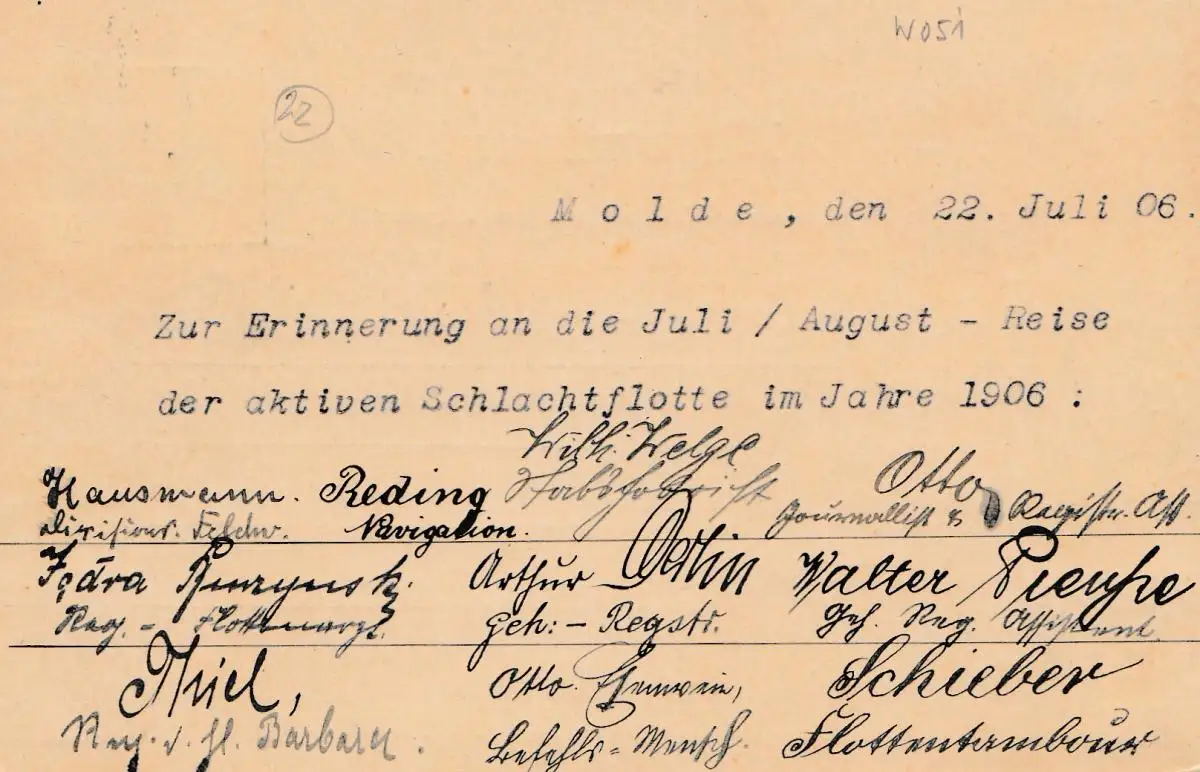 W051
22
Molde, den 22. Juli 06.
Zur Erinnerung an die Juli / August - Reise
der aktiven Schlachtflotte im Jahre 1906 :
Wilh. Welge
Hausmann. Reding Otto
Divisions. Feldw. Navigation. Journallist & Registr. Ass.
Arthur Walter
Reg. - Flottenarzt. Geh: - Regstr. Geh. Reg. Assistent.
Thiel, Otto Schieber
Reg. d. hl. Barbara. Befehls = Mensch. Flottentambour